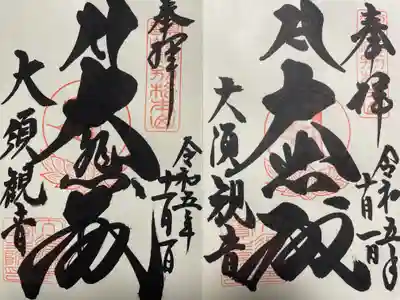 奉拝
令和五年
十月一日
大悲殿
大須観音
奉拝
令和五年
大悲殿
大須観音